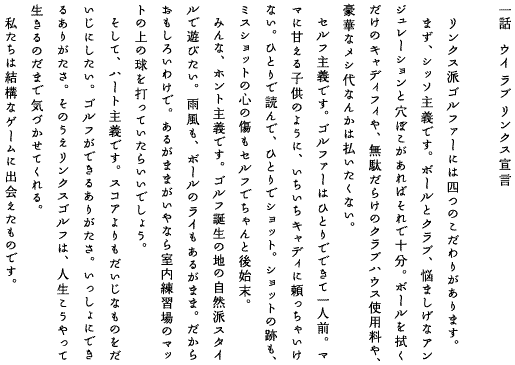 一話　ウイ ラブ リンクス宣言
リンクス派ゴルファーには四つのこだわりがあります。
まず、シッソ主義です。ボールとクラブ、悩ましげなアン
ジュレーションと穴ぼこがあればそれで十分。ボールを拭く
だけのキャディフィや、無駄だらけのクラブハウス使用料や、
豪華なメシ代なんかは払いたくない。
セルフ主義です。ゴルファーはひとりでできて一人前。マ
マに甘える子供のように、いちいちキャディに頼っちゃいけ
ない。ひとりで読んで、ひとりでショット。ショットの跡も、
ミスショットの心の傷もセルフでちゃんと後始末。
みんな、ホント主義です。ゴルフ誕生の地の自然派スタイ
ルで遊びたい。雨風も、ボールのライもあるがまま。だから
おもしろいわけで。あるがままがいやなら室内練習場のマッ
トの上の球を打っていたらいいでしょう。
そして、ハート主義です。スコアよりもだいじなものをだ
いじにしたい。ゴルフができるありがたさ。いっしょにでき
るありがたさ。そのうえリンクスゴルフは、人生こうやって
生きるのだまで気づかせてくれる。
私たちは結構なゲームに出会えたものです。